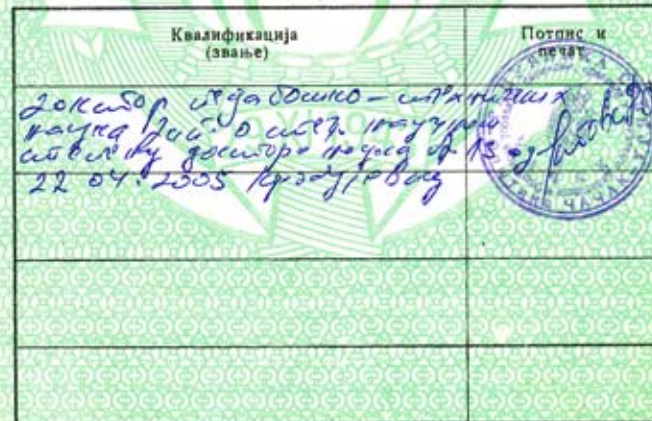 Квалификација
(звање)
Потпис и
печат
доктор педагошко-техничких
наука Дип. о стеч. научном
степену доктора наука бр 13 од
22 04. 2005 Крагујевац
ЧАЧАК